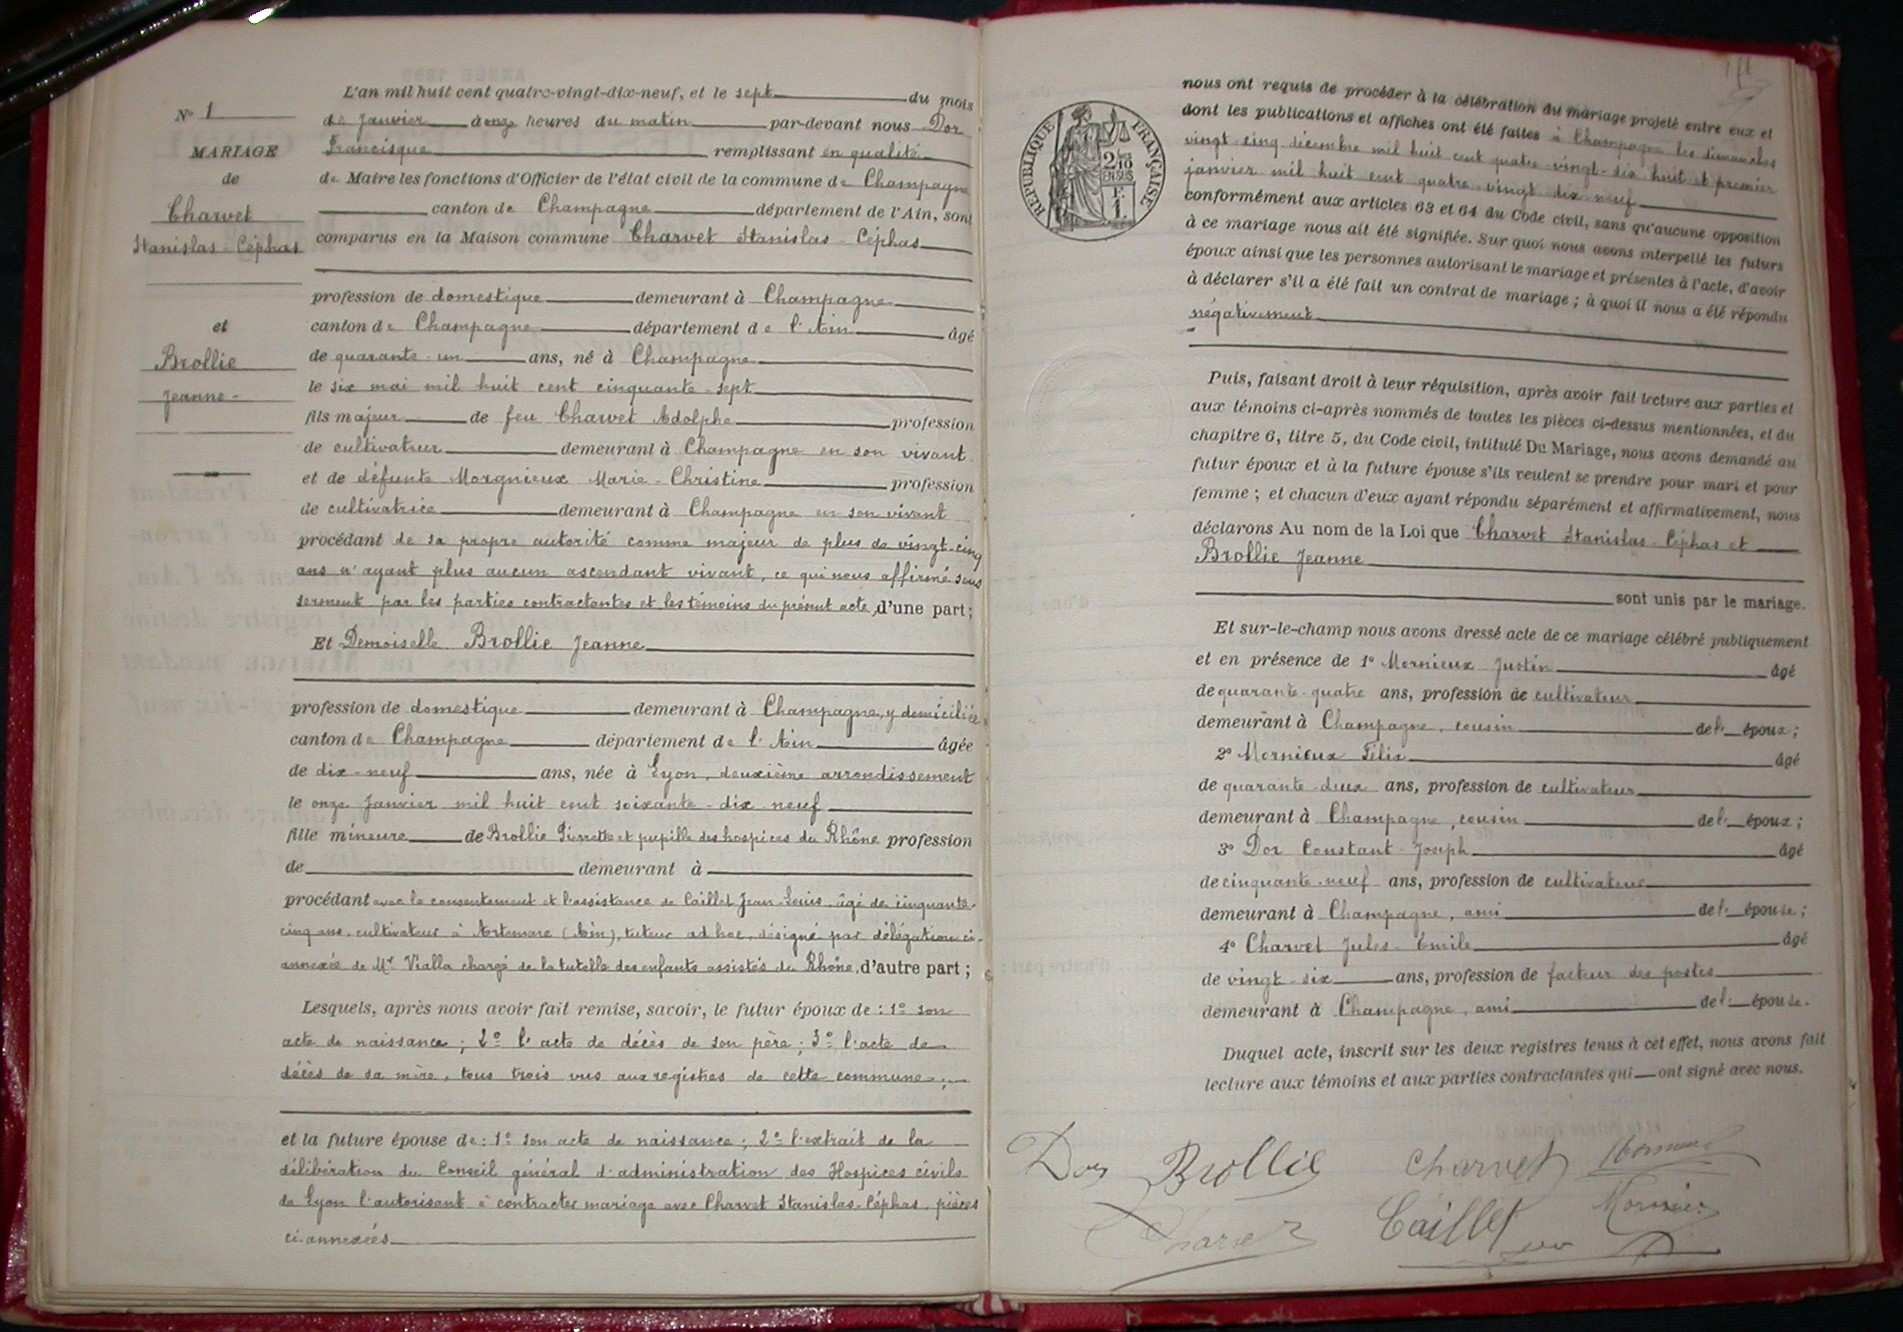 N° 1
MARIAGE
de
Charvet
Stanislas-Céphas
et
Brollie
Jeanne-
L'an mil huit cent quatre-vingt-dix-neuf, et le sept du mois
de Janvier à onze heures du matin par-devant nous Dor
Francisque remplissant en qualité
de Maire les fonctions d'Officier de l'état civil de la commune de Champagne
canton de Champagne département de l'Ain, sont
comparus en la Maison commune Charvet Stanislas-Céphas
profession de domestique demeurant à Champagne
canton de Champagne département de l'Ain âgé
de quarante-un ans, né à Champagne
le six mai mil huit cent cinquante-sept
fils majeur de feu Charvet Adolphe profession
de cultivateur demeurant à Champagne en son vivant
et de défunte Morgnieux Marie-Christine profession
de cultivatrice demeurant à Champagne en son vivant
procédant de sa propre autorité comme majeur de plus de vingt-cinq
ans n'ayant plus aucun ascendant vivant, ce qui nous affirmé sous
serment par les parties contractantes et les témoins du présent acte, d'une part;
Et Demoiselle Brollie Jeanne
profession de domestique demeurant à Champagne, y domiciliée
canton de Champagne département de l'Ain âgée
de dix-neuf ans, née à Lyon, deuxième arrondissement
le onze Janvier mil huit cent soixante-dix-neuf
fille mineure de Brollie Pierrette et pupille des hospices du Rhône profession
de demeurant à
procédant avec le consentement et l'assistance de Caillet Jean-Louis, âgé de cinquante-
cinq ans, cultivateur à Artemare (Ain), tuteur ad hoc, désigné par délégation ci-
annexée de Mr Vialla chargé de la tutelle des enfants assistés du Rhône, d'autre part;
Lesquels, après nous avoir fait remise, savoir, le futur époux de: 1° son
acte de naissance; 2° l'acte de décès de son père; 3° l'acte de
décès de sa mère, tous trois vus aux registres de cette commune;
et la future épouse de: 1° son acte de naissance; 2° l'extrait de la
délibération du Conseil général d'administration des Hospices civils
de Lyon l'autorisant à contracter mariage avec Charvet Stanislas-Céphas, pièces
ci-annexées
RÉPUBLIQUE FRANÇAISE
2/10
EN SUS
F.
1.
nous ont requis de procéder à la célébration du mariage projeté entre eux et
dont les publications et affiches ont été faites à Champagne les dimanches
vingt-cinq décembre mil huit cent quatre-vingt-dix-huit et premier
janvier mil huit cent quatre-vingt-dix-neuf
conformément aux articles 63 et 64 du Code civil, sans qu'aucune opposition
à ce mariage nous ait été signifiée. Sur quoi nous avons interpellé les futurs
époux ainsi que les personnes autorisant le mariage et présentes à l'acte, d'avoir
à déclarer s'il a été fait un contrat de mariage; à quoi il nous a été répondu
négativement
Puis, faisant droit à leur réquisition, après avoir fait lecture aux parties et
aux témoins ci-après nommés de toutes les pièces ci-dessus mentionnées, et du
chapitre 6, titre 5, du Code civil, intitulé Du Mariage, nous avons demandé au
futur époux et à la future épouse s'ils veulent se prendre pour mari et pour
femme; et chacun d'eux ayant répondu séparément et affirmativement, nous
déclarons Au nom de la Loi que Charvet Stanislas-Céphas et
Brollie Jeanne
sont unis par le mariage.
Et sur-le-champ nous avons dressé acte de ce mariage célébré publiquement
et en présence de 1° Mornieux Justin âgé
de quarante-quatre ans, profession de cultivateur
demeurant à Champagne, cousin de l' époux;
2° Mornieux Félix âgé
de quarante-deux ans, profession de cultivateur
demeurant à Champagne, cousin de l' époux;
3° Dor Constant-Joseph âgé
de cinquante-neuf ans, profession de cultivateur
demeurant à Champagne, ami de l' épouse;
4° Charvet Jules-Emile âgé
de vingt-six ans, profession de facteur des postes
demeurant à Champagne, ami de l' épouse.
Duquel acte, inscrit sur les deux registres tenus à cet effet, nous avons fait
lecture aux témoins et aux parties contractantes qui ont signé avec nous.
Dor Brollie Charvet
Charvet Caillet Mornieux